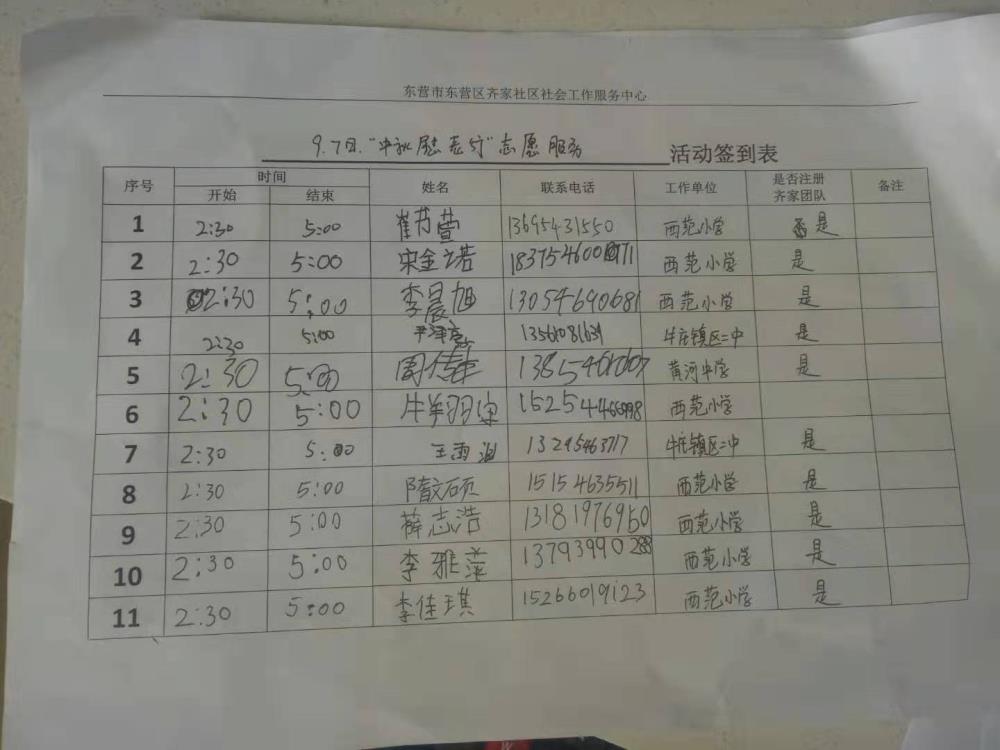 东营市东营区齐家社区社会工作服务中心
9.7日."中秋慰老行"志愿服务 活动签到表
序号 时间 姓名 联系电话 工作单位 是否注册齐家团队 备注
开始 结束
1 2:30 5:00 崔艿萱 13695431550 西范小学 是
2 2:30 5:00 宋金诺 西范小学 是
3 2:30 5:00 李晨旭 13054690681 西范小学 是
4 2:30 5:00 13561081631 牛庄镇区二中 是
5 2:30 5:00 黄河中学 是
6 2:30 5:00 西范小学
7 2:30 5:00 王雨 13295463717 牛庄镇区二中 是
8 2:30 5:00 隋文硕 15154635511 西范小学 是
9 2:30 5:00 薛志浩 13181976950 西范小学 是
10 2:30 5:00 李雅萍 13793990288 西范小学 是
11 2:30 5:00 李佳琪 15266019123 西范小学 是